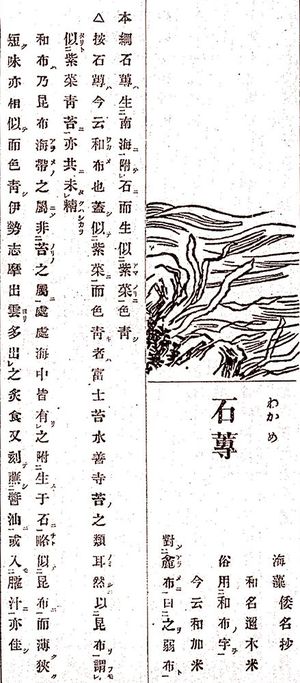 わかめ
石蓴
海藻 倭名抄
和名邇木米
俗用和布字
今云和加米
對麁布曰之弱布
本綱石蓴生南海附石而生似紫菜色青
△按石蓴今云和布也蓋似紫菜而色青者富士苔水善寺苔之類耳然以昆布謂
似紫菜青苔亦共未精
和布乃昆布海帶之屬非苔之屬處處海中皆有之附生于石略似昆布而薄狹
短味亦相似而色青伊勢志摩出雲多出之炙食又刻醬油或入臛汁亦佳